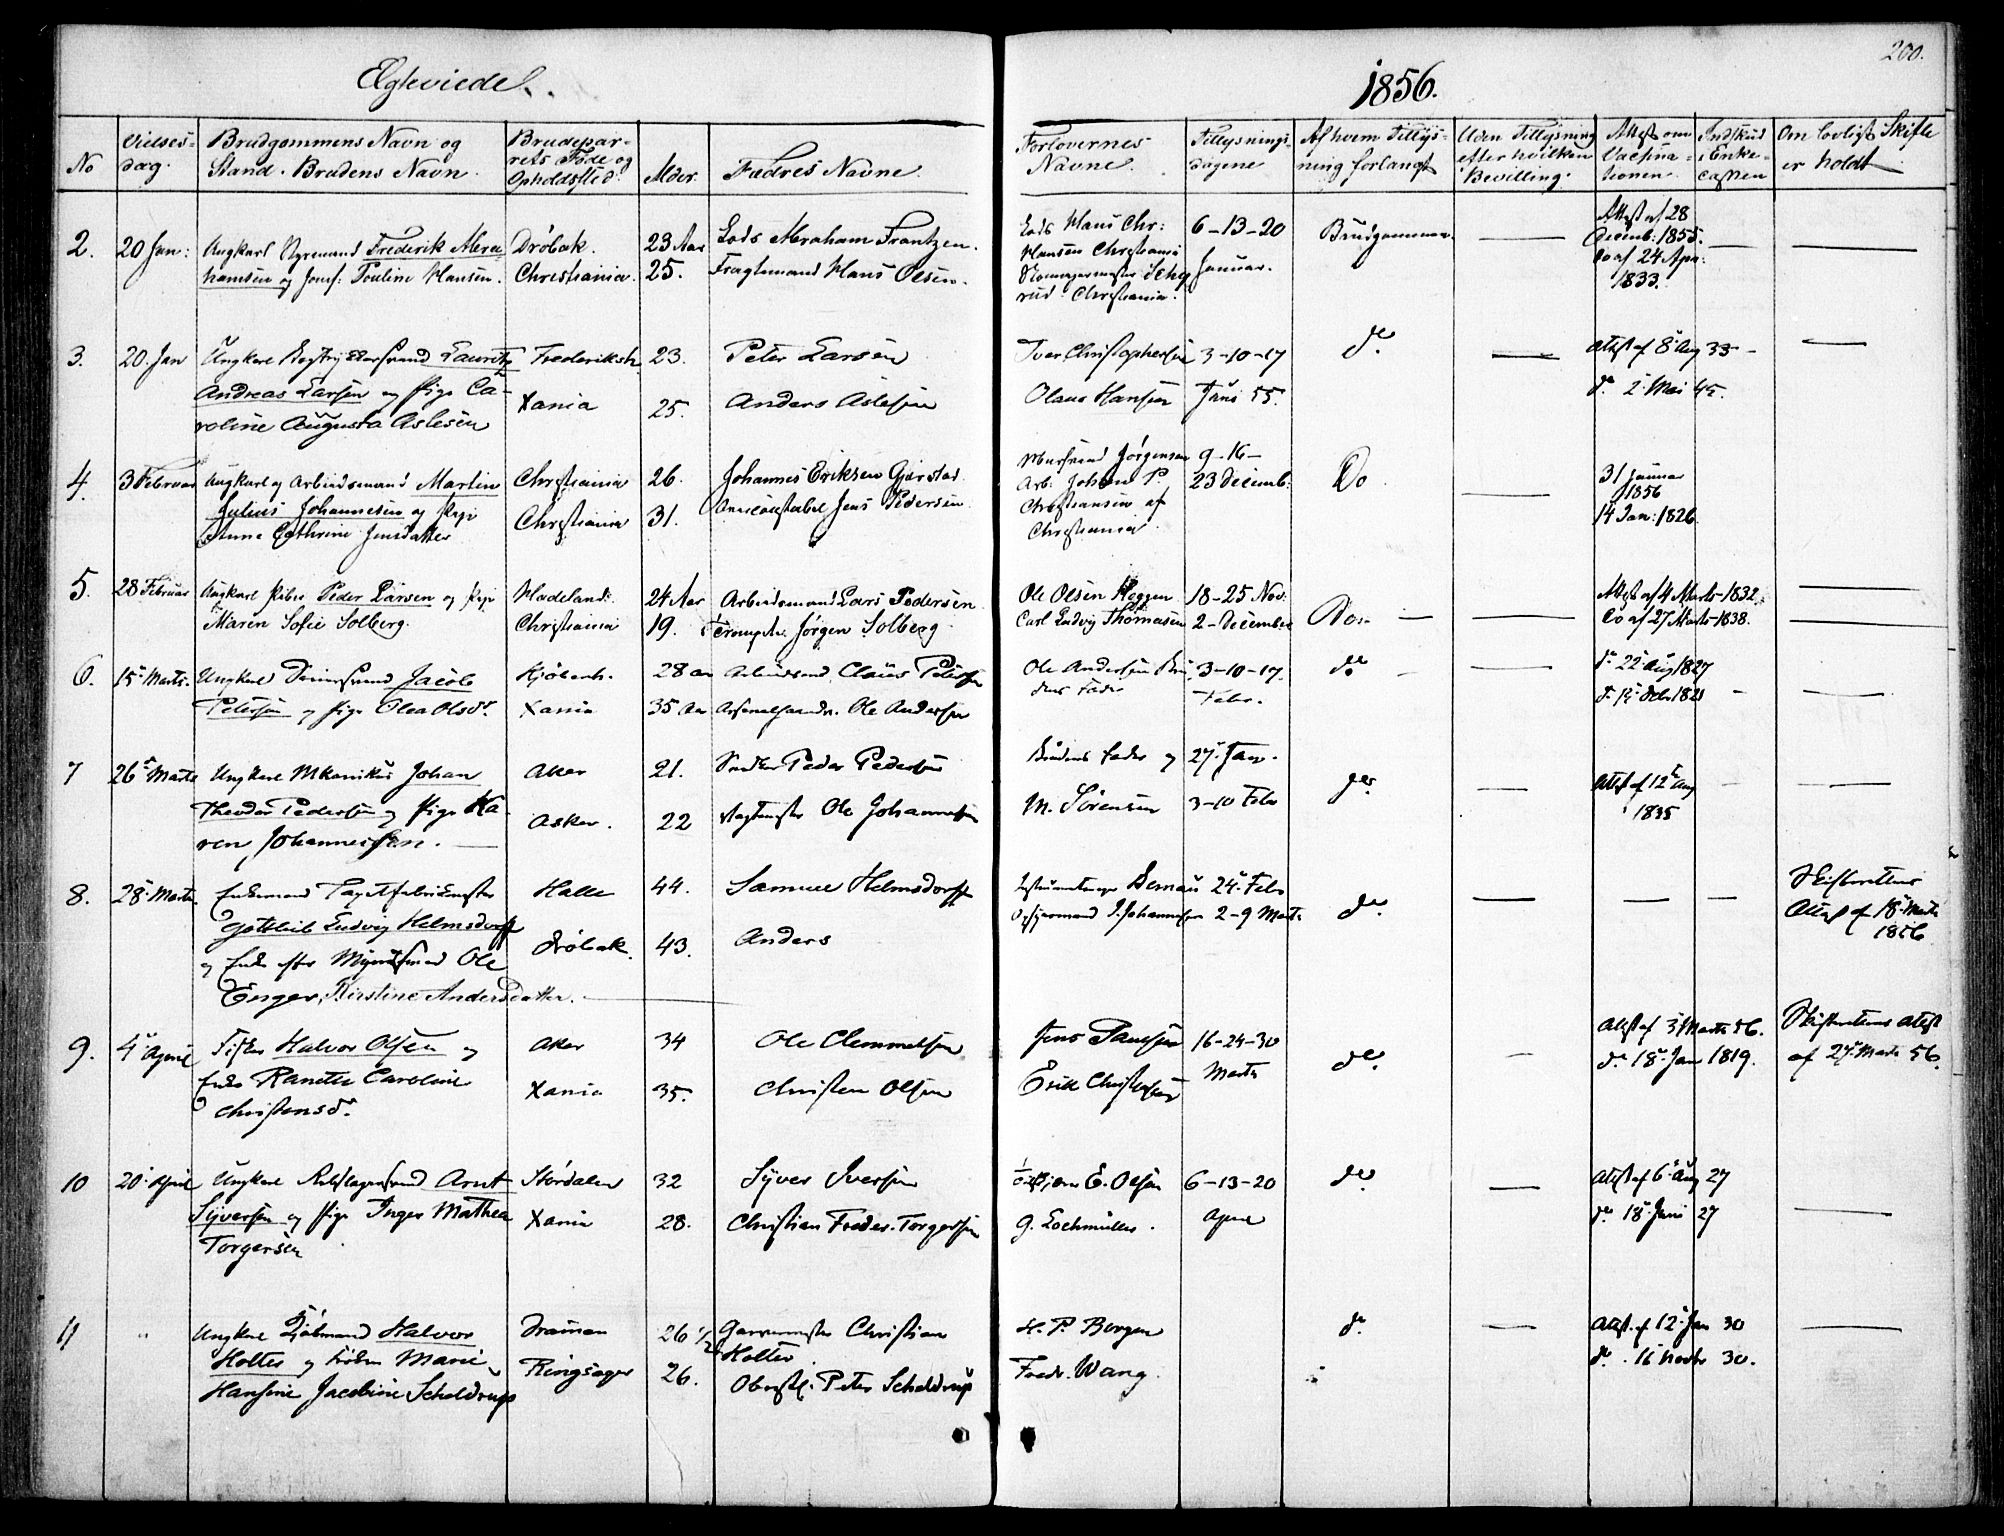 Egteviede
1856.
200.
No
Vielses-
dag.
Brudgommens Navn og
Stand. Brudens Navn.
Brudepar-
rets Føde og
Opholdssted.
Alder.
Fædres Navne.
Forlovernes
Navne.
Tillysnings-
dagene
Af hvem Tillys-
ning forlangt
Uden Tillysning
efter hvilken
Bevilling.
Attest om
Vaccina-
tionen.
Indskud
i Enke-
cassen
Om lovligt Skifte
er holdt
2. 20 Jan: Ungkarl Styrmand Frederik Abra-
hamsen og Jomf: Pouline Hansen.
Drøbak.
Christiania.
23 Aar
25.
Lods Abraham Frantzen.
Fragtemand Hans Olsen.
Lods Hans Chr:
Hansen Christiania
rud Christiania.
6-13-20
Januar.
Brudgommen.
Attest af 28
Decemb: 1855.
Do af 24 Apr:
1833.
3. 20 Jan Ungkarl Lauritz
Andreas Larsen og Pige Ca-
roline Augusta Aslesen
Frederiksh
Xania
23.
25.
Peter Larsen
Anders Aslesen
Iver Christophersen
Olaus Hansen
3-10-17
Juni 55.
do.
Attest af 8 Aug 33
do. 2 Mai 45.
4. 3 Februar Ungkarl og Arbeidsmand Martin
Julius Johannesen og Pige
Anne Cathrine Jensdatter
Christiania
Christiania
26.
31.
Johannes Eriksen Gjerstad
Jens Pedersen
Jørgensen
Arb: Johan P.
Christiansen af
Christiania
9-16-
23 Decemb:
Do
31 Januar
1856
14 Jan: 1826.
5. 28 Februar Ungkarl Peder Larsen og Pige
Maren Sofie Solberg.
Hadeland.
Christiania
24 Aar
19.
Arbeidsmand Lars Pedersen.
Jørgen Solberg
Ole Olsen Heggen
Carl Ludvig Thomasen
18-25 Nov:
2-December
Do
Attest af 4 Marts 1832
Do af 27 Marts 1838.
6. 15 Marts. Ungkarl Jacob
Petersen og Pige Olea Olsdr.
Kjøbenh.
Xania
28 aar
35 Aar
Claus Petersen
Ole Andersen
Ole Andersen Bru
dens Fader
3-10-17.
Febr.
do
do 22 Aug 1827
7 26 Marts Ungkarl Mkanikus Johan
Theodor Pedersen og Pige Ka-
ren Johannessen.
Aker
Asker.
21.
22
Peder Pedersen
Ole Johannesen
Brudens Fader og
M. Sørensen
27 Jan.
3-10 Febr
do.
Attest af 12 Aug
1835
8. 28 Marts. Enkemand
Gottlieb Ludvig Helmsdorff
og Enke efter Ole
Enger, Kirstine Andersdatter.
Halle
Drøbak.
44.
43.
Samuel Helmsdorff
Anders
Bernau
J. Johannesen
24 Febr
2-9 Marts
do.
Skifterettens
Attest af 18 Marts
1856
9. 4 April Fisker Halvor Olsen og
Enke Ranette Caroline
Christensdr.
Aker
Xania
34
35.
Ole Clemmetsen
Christen Olsen
Jens Paulsen
Erik Christensen
16-24-30
Marts
do.
Attest af 3 Marts 56.
do. 18 Jan 1819.
Skifterettens Attest
af 27 Marts 56.
10 20 April Ungkarl Arnt
Syversen og Pige Inger Mathea
Torgersen
Størdalen
Xania
32
28.
Syver Iversen
Christian Freder. Torgersen
E. Olsen
G. Lochmüller.
6-13-20
April
do
Attest af 6 Aug 27
do 18 Juni 27
11 " Ungkarl Kjøbmand Halvor
Holter og Frøken Marie
Hansine Jacobine Scheldrup
Dramen
Ringsager
26 1/2
26.
Garvermester Christian
Holter
Oberstl. Peter Scheldrup
H. P. Borgen
Fredr. Wang.
do
Attest. af 12 Jan 30
do. 16 Marts 30.